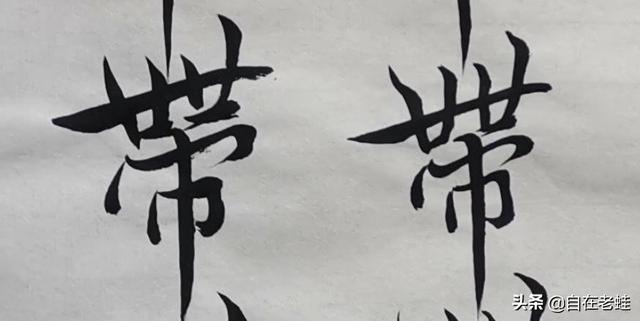 帶 帶
头条 @自在老蛙